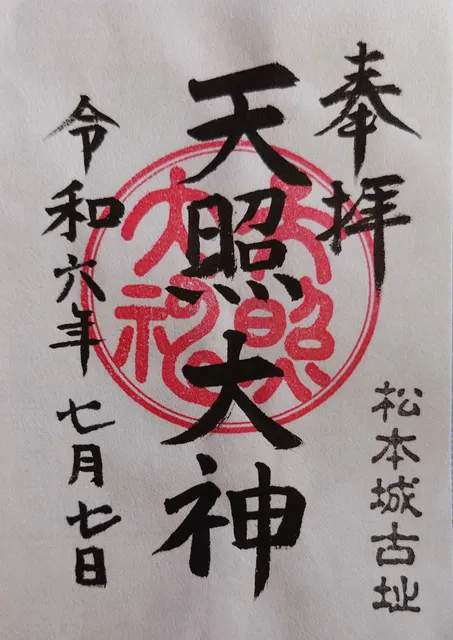 奉拝
松本城古址
天照大神
天照大神
令和六年七月七日